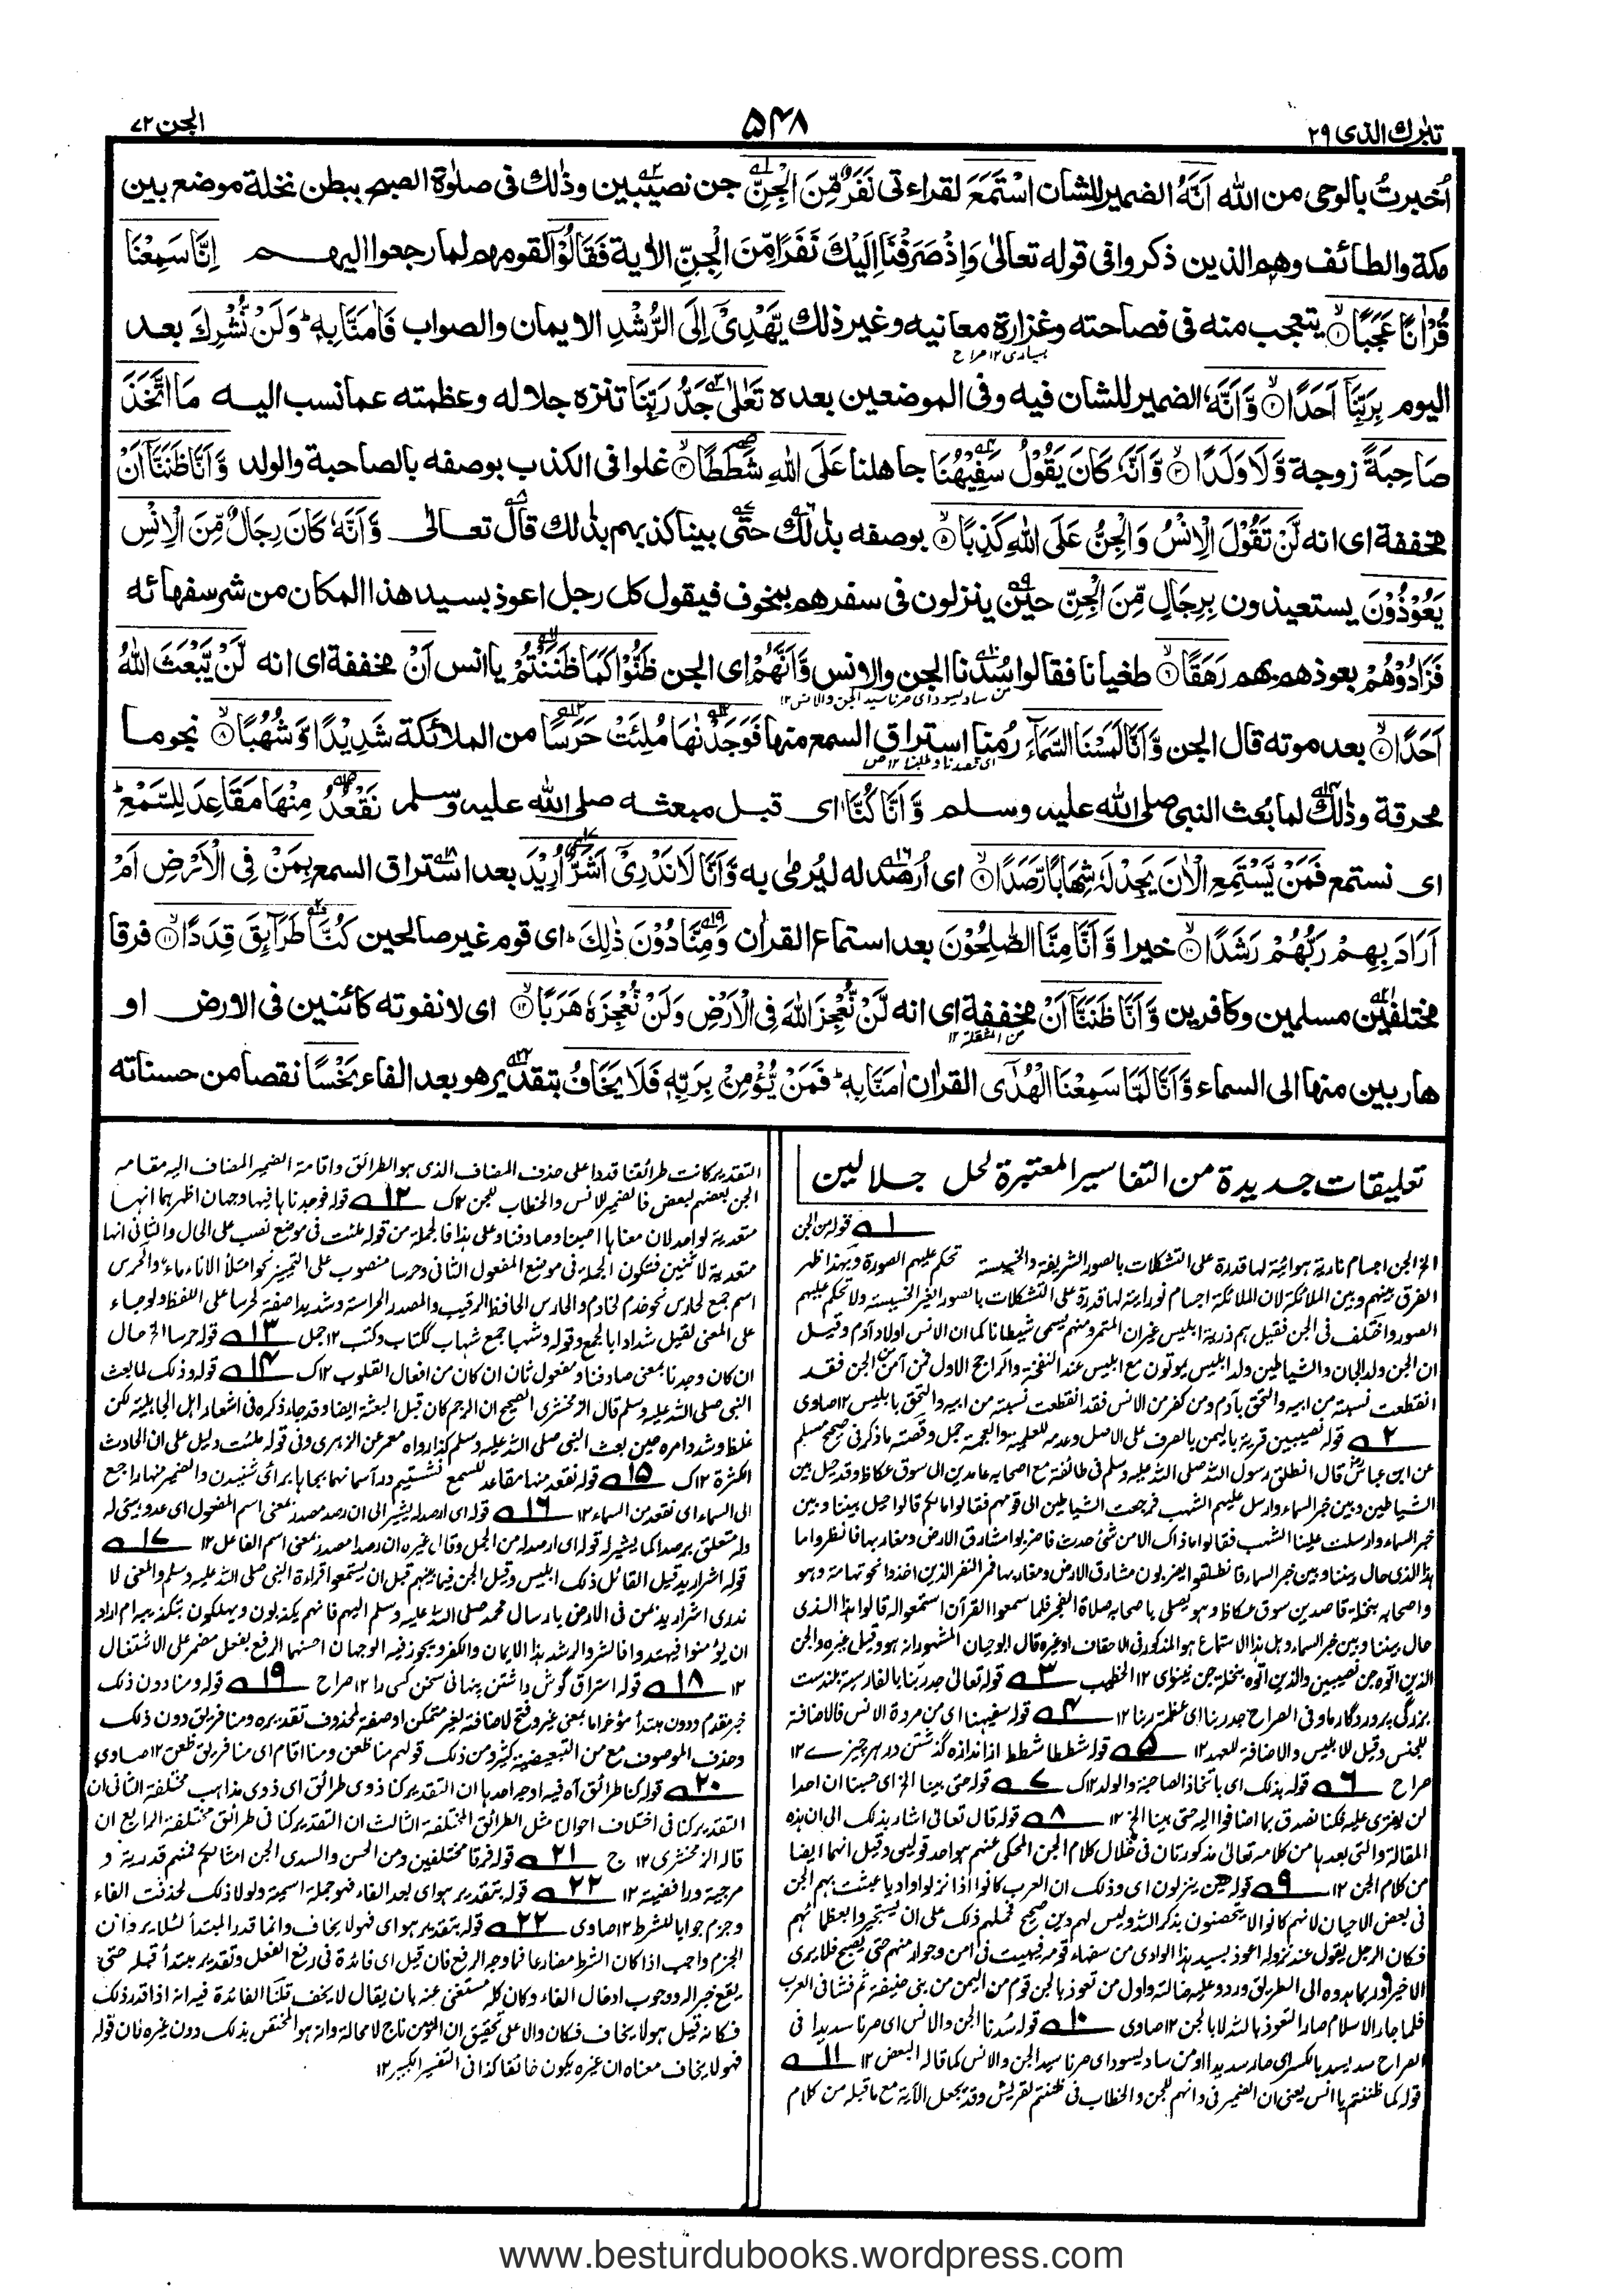 تبٰرك الذى ٢٩
٥٤٨
الجن ٧٢
اُخبرتُ بالوحى من الله اَنَّهُ الضمير للشان اسْتَمَعَ لقراءتى نَفَرٌ مِّنَ الْجِنِّ جن نصيبين وذٰلك فى صلوٰة الصبح ببطن نخلة موضع بين
مكة والطائف وهم الذين ذكروا فى قوله تعالىٰ وَاِذْ صَرَفْنَا اِلَيْكَ نَفَرًا مِّنَ الْجِنِّ الاٰية فَقَالُوْٓا لقومهم لما رجعوا اليهم اِنَّا سَمِعْنَا
قُرْاٰنًا عَجَبًا ١ يتعجب منه فى فصاحته وغزارة معانيه وغير ذلك يَّهْدِىْٓ اِلَى الرُّشْدِ الايمان والصواب فَاٰمَنَّا بِهٖ وَلَنْ نُّشْرِكَ بعد
بسيارى ١٢ صراح
اليوم بِرَبِّنَآ اَحَدًا ٢ وَّاَنَّهٗ الضمير للشان فيه وفى الموضعين بعده تَعٰلٰى جَدُّ رَبِّنَا تنزه جلاله وعظمته عما نسب اليه مَا اتَّخَذَ
صَاحِبَةً زوجة وَّلَا وَلَدًا ٣ وَّاَنَّهٗ كَانَ يَقُوْلُ سَفِيْهُنَا جاهلنا عَلَى اللهِ شَطَطًا ٤ غلوا فى الكذب بوصفه بالصاحبة والولد وَّاَنَّا ظَنَنَّآ اَنْ
مخففة اى انه لَّنْ تَقُوْلَ الْاِنْسُ وَالْجِنُّ عَلَى اللهِ كَذِبًا ٥ بوصفه بذٰلك حتّٰى بينا كذبهم بذٰلك قال تعالىٰ وَّاَنَّهٗ كَانَ رِجَالٌ مِّنَ الْاِنْسِ
يَعُوْذُوْنَ يستعيذون بِرِجَالٍ مِّنَ الْجِنِّ حين ينزلون فى سفرهم بمخوف فيقول كل رجل اعوذ بسيد هذا المكان من شر سفهائه
فَزَادُوْهُمْ بعوذهم بهم رَهَقًا ٦ طغيانا فقالوا سُدنا الجن والانس وَّاَنَّهُمْ اى الجن ظَنُّوْا كَمَا ظَنَنْتُمْ يا انس اَنْ مخففة اى انه لَّنْ يَّبْعَثَ اللهُ
من ساد يسود اى صرنا سيد الجن والانس ١٢
اَحَدًا ٧ بعد موته قال الجن وَّاَنَّا لَمَسْنَا السَّمَآءَ رُمنا استراق السمع منها فَوَجَدْنٰهَا مُلِئَتْ حَرَسًا من الملائكة شَدِيْدًا وَّشُهُبًا ٨ نجوما
اى قصدنا وطلبنا ١٢ ص
محرقة وذٰلك لما بُعث النبى صلى الله عليه وسلم وَّاَنَّا كُنَّا اى قبل مبعثه صلى الله عليه وسلم نَقْعُدُ مِنْهَا مَقَاعِدَ لِلسَّمْعِ
اى نستمع فَمَنْ يَّسْتَمِعِ الْاٰنَ يَجِدْ لَهٗ شِهَابًا رَّصَدًا ٩ اى اُرصد له ليُرمٰى به وَّاَنَّا لَا نَدْرِىْٓ اَشَرٌّ اُرِيْدَ بعد استراق السمع بِمَنْ فِى الْاَرْضِ اَمْ
اَرَادَ بِهِمْ رَبُّهُمْ رَشَدًا ١٠ خيرا وَّاَنَّا مِنَّا الصّٰلِحُوْنَ بعد استماع القراٰن وَمِنَّا دُوْنَ ذٰلِكَ اى قوم غير صالحين كُنَّا طَرَآئِقَ قِدَدًا ١١ فرقا
مختلفين مسلمين وكافرين وَّاَنَّا ظَنَنَّآ اَنْ مخففة اى انه لَّنْ نُّعْجِزَ اللهَ فِى الْاَرْضِ وَلَنْ نُّعْجِزَهٗ هَرَبًا ١٢ اى لا نفوته كائنين فى الارض او
من المثقلة ١٢
هاربين منها الى السماء وَّاَنَّا لَمَّا سَمِعْنَا الْهُدٰٓى القراٰن اٰمَنَّا بِهٖ فَمَنْ يُّؤْمِنْ بِرَبِّهٖ فَلَا يَخَافُ بتقدير هو بعد الفاء بَخْسًا نقصا من حسناته
تعليقات جديدة من التفاسير المعتبرة لحل جلالين
١ قوله من الجن
الخ الجن اجسام نارية هوائية لها قدرة على التشكلات بالصور الشريفة والخسيسة تحكم عليهم الصورة وبهذا ظهر
الفرق بينهم وبين الملائكة لان الملائكة اجسام نورانية لها قدرة على التشكلات بالصور الغير الخسيسة ولا تحكم عليهم
الصور واختلف فى الجن فقيل هم ذرية ابليس غير ان المتمرد منهم يسمى شيطانا كما ان الانس اولاد آدم وقيل
ان الجن ولد الجان والشياطين ولد ابليس يموتون مع ابليس عند النفخة والراجح الاول فمن آمن من الجن فقد
انقطعت نسبته من ابيه والتحق بآدم ومن كفر من الانس فقد انقطعت نسبته من ابيه والتحق بابليس ١٢ صاوى
٢ قوله نصيبين قرية باليمن بالصرف على الاصل وعدمه للعلمية والعجمة جمل وقصته ما ذكر فى صحيح مسلم
عن ابن عباس قال انطلق رسول الله صلى الله عليه وسلم فى طائفة مع اصحابه عامدين الى سوق عكاظ وقد حيل بين
الشياطين وبين خبر السماء وارسل عليهم الشهب فرجعت الشياطين الى قومهم فقالوا مالكم قالوا حيل بيننا وبين
خبر السماء وارسلت علينا الشهب فقالوا ما ذاك الا من شئ حدث فاضربوا مشارق الارض ومغاربها فانظروا ما
هذا الذى حال بيننا وبين خبر السماء فانطلقوا يضربون مشارق الارض ومغاربها فمر النفر الذين اخذوا نحو تهامة وهو
واصحابه بنخلة قاصدين سوق عكاظ وهو يصلى باصحابه صلاة الفجر فلما سمعوا القرآن استمعوا له قالوا هذا الذى
حال بيننا وبين خبر السماء وهل هذا الاستماع هو المذكور فى الاحقاف او غيره قال ابو حيان المشهور انه هو وقيل غيره والجن
الذين اتوه جن نصيبين والذين اتوه بنخلة جن نينوى ١٢ الخطيب ٣ قوله تعالىٰ جد ربنا بالفارسية بلندست
بزرگى پروردگار ما وفى الصراح جد ربنا اى عظمة ربنا ١٢ ٤ قوله سفيهنا اى من مردة الانس فالاضافة
للجنس وقيل لابليس والاضافة للعهد ١٢ ٥ قوله شططا شطط از اندازه گذشتن در هر چيزے ١٢
صراح ٦ قوله بذلك اى باتخاذ الصاحبة والولد ١٢ك ٧ قوله حتى بينا الخ اى حسبنا ان احدا
لن يفترى عليه فكنا نصدق بما اضافوا اليه حتى بينا الخ ١٢ ٨ قوله قال تعالى اشار بذلك الى ان هذه
المقالة والتى بعدها من كلامه تعالىٰ مذكورتان فى خلال كلام الجن المحكى عنهم وهو احد قولين وقيل انهما ايضا
من كلام الجن ١٢ ٩ قوله حين ينزلون اى وذلك ان العرب كانوا اذا نزلوا واديا عبثت بهم الجن
فى بعض الاحيان لانهم كانوا لا يتحصنون بذكر الله وليس لهم دين صحيح فحملهم ذلك على ان يستجيروا بعظمائهم
فكان الرجل يقول عند نزوله اعوذ بسيد هذا الوادى من سفهاء قومه فيبيت فى امن وجوار منهم حتى يصبح فلا يرى
الا خيرا وربما هدوه الى الطريق وردوا عليه ضالته واول من تعوذ بالجن قوم من اليمن من بنى حنيفة ثم فشا فى العرب
فلما جاء الاسلام صار التعوذ بالله لا بالجن ١٢ صاوى ١٠ قوله سُدنا الجن والانس اى صرنا سديدا فى
الصراح سد يسد بالكسر اى صار سديدا او من ساد يسود اى صرنا سيد الجن والانس كما قاله البعض ١٢ ١١
قوله كما ظننتم يا انس يعنى ان الضمير فى وانهم للجن والخطاب فى ظننتم لقريش وقد يجعل الآية مع ما قبله من كلام
التقدير كانت طرائقنا قددا على حذف المضاف الذى هو الطرائق واقامة الضمير المضاف اليه مقامه
الجن بعضهم لبعض فالضمير للانس والخطاب للجن ١٢ك ١٢ قوله فوجدناها فيها وجهان اظهرهما انها
متعدية لواحد لان معناها اصبنا وصادفنا وعلى هذا فالجملة من قوله ملئت فى موضع نصب على الحال والثانى انها
متعدية لاثنين فتكون الجملة فى موضع المفعول الثانى وحرسا منصوب على التمييز نحو امتلأ الاناء ماء والحرس
اسم جمع لحارس نحو خدم لخادم والحارس الحافظ الرقيب والمصدر الحراسة وشديدا صفة لحرسا على اللفظ ولو جاء
على المعنى لقيل شدادا بالجمع وقوله وشهبا جمع شهاب ككتاب وكتب ١٢ جمل ١٣ قوله حرسا الخ حال
ان كان وجدنا بمعنى صادفنا ومفعول ثان ان كان من افعال القلوب ١٢ك ١٤ قوله وذلك لما بعث
النبى صلى الله عليه وسلم قال الزمخشرى الصحيح ان الرجم كان قبل البعثة ايضا وقد جاء ذكره فى اشعار اهل الجاهلية لكن
غلظ وشدد امره حين بعث النبى صلى الله عليه وسلم كذا رواه معمر عن الزهرى وفى قوله ملئت دليل على ان الحادث
الكثرة ١٢ك ١٥ قوله نقعد منها مقاعد للسمع نشستيم در آسمانها بجاها برائ شنيدن والضمير منها راجع
الى السماء اى نقعد من السماء ١٢ ١٦ قوله اى ارصد له يشير الى ان رصد مصدر بمعنى اسم المفعول اى عد وهيئ له
وله متعلق برصدا كما يشير له قوله اى ارصد له من الجمل وقال غيره ان رصدا مصدر بمعنى اسم الفاعل ١٢ ١٧
قوله اشر اريد قيل القائل ذلك ابليس وقيل الجن فيما بينهم قبل ان يستمعوا قراءة النبى صلى الله عليه وسلم والمعنى لا
ندرى اشر اريد بمن فى الارض بارسال محمد صلى الله عليه وسلم اليهم فانهم يكذبون ويهلكون بتكذيبه ام اراد
ان يؤمنوا فيهتدوا فالشر والرشد هذا الايمان والكفر ويجوز فيه الوجهان احسنهما الرفع بفعل مضمر على الاشتغال
١٢ ١٨ قوله استراق گوش داشتن پنهانى سخن كسى را ١٢ صراح ١٩ قوله ومنا دون ذلك
خبر مقدم ودون مبتدأ مؤخر اما بمعنى غير وفتح لاضافته لغير متمكن او صفة لمحذوف تقديره ومنا فريق دون ذلك
وحذف الموصوف مع من التبعيضية كثير ومن ذلك قولهم منا ظعن ومنا اقام اى منا فريق ظعن ١٢ صاوى
٢٠ قوله كنا طرائق آه فيه اوجه احدها ان التقدير كنا ذوى طرائق اى ذوى مذاهب مختلفة الثانى ان
التقدير كنا فى اختلاف احوالنا مثل الطرائق المختلفة الثالث ان التقدير كنا فى طرائق مختلفة الرابع ان
قاله الزمخشرى ١٢ ج ٢١ قوله فرقا مختلفين وعن الحسن والسدى الجن امثالكم فمنهم قدرية و
مرجية ورافضية ١٢ ٢٢ قوله بتقدير هو اى بعد الفاء فهو جملة اسمية ولولا ذلك لحذفت الفاء
وجزم جوابا للشرط ١٢ صاوى ٢٢ قوله بتقدير هو اى فهو لا يخاف وانما قدر المبتدأ لئلا يرد ان
الجزم واجب اذا كان الشرط مضارعا فما وجه الرفع فان قيل اى فائدة فى رفع الفعل وتقدير مبتدأ قبله حتى
يقع خبرا له ووجوب ادخال الفاء وكان كله مستغنى عنه بان يقال لا يخف قلنا الفائدة فيه انه اذا قدر ذلك
فكانه قيل هو لا يخاف فكان دالا على تحقيق ان المؤمن ناج لا محالة وانه هو المختص بذلك دون غيره فان قوله
فهو لا يخاف معناه ان غيره يكون خائفا كذا فى التفسير الكبير ١٢
www.besturdubooks.wordpress.com